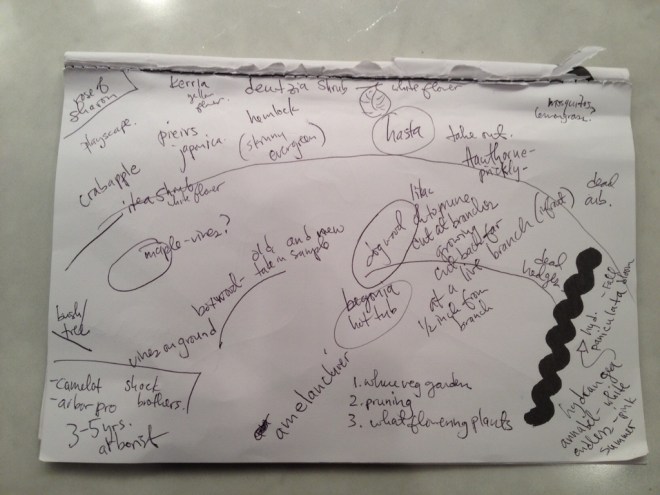 rose of
sharon
playscape.
crabapple
kerria
yellow
flower.
pieris
japonica.
itea shrub
white flower
deutzia shrub
white flower
hemlock
(skinny
evergreen)
hasta
take out.
Hawthorne-
prickly-
mosquitos
lemongrass?
dead
arb.
maple-vines?
boxwood-
old and new
take in sample
vines on ground
bush/
tree
dogwood
lilac
dutoprune
cut at branches
growing
cut back far
at a live branch (infront)
1/2 inch from
branch
dead
hedges
begonia
hot tub
amelanchier
-camelot
-arborpro
shock
brothers.
3-5 yrs.
arborist
1. where veg garden
2. pruning
3. what flowering plants
hyd. - Fall
paniculata bloom
hydrangea
annabel- white
endless - pink
summer